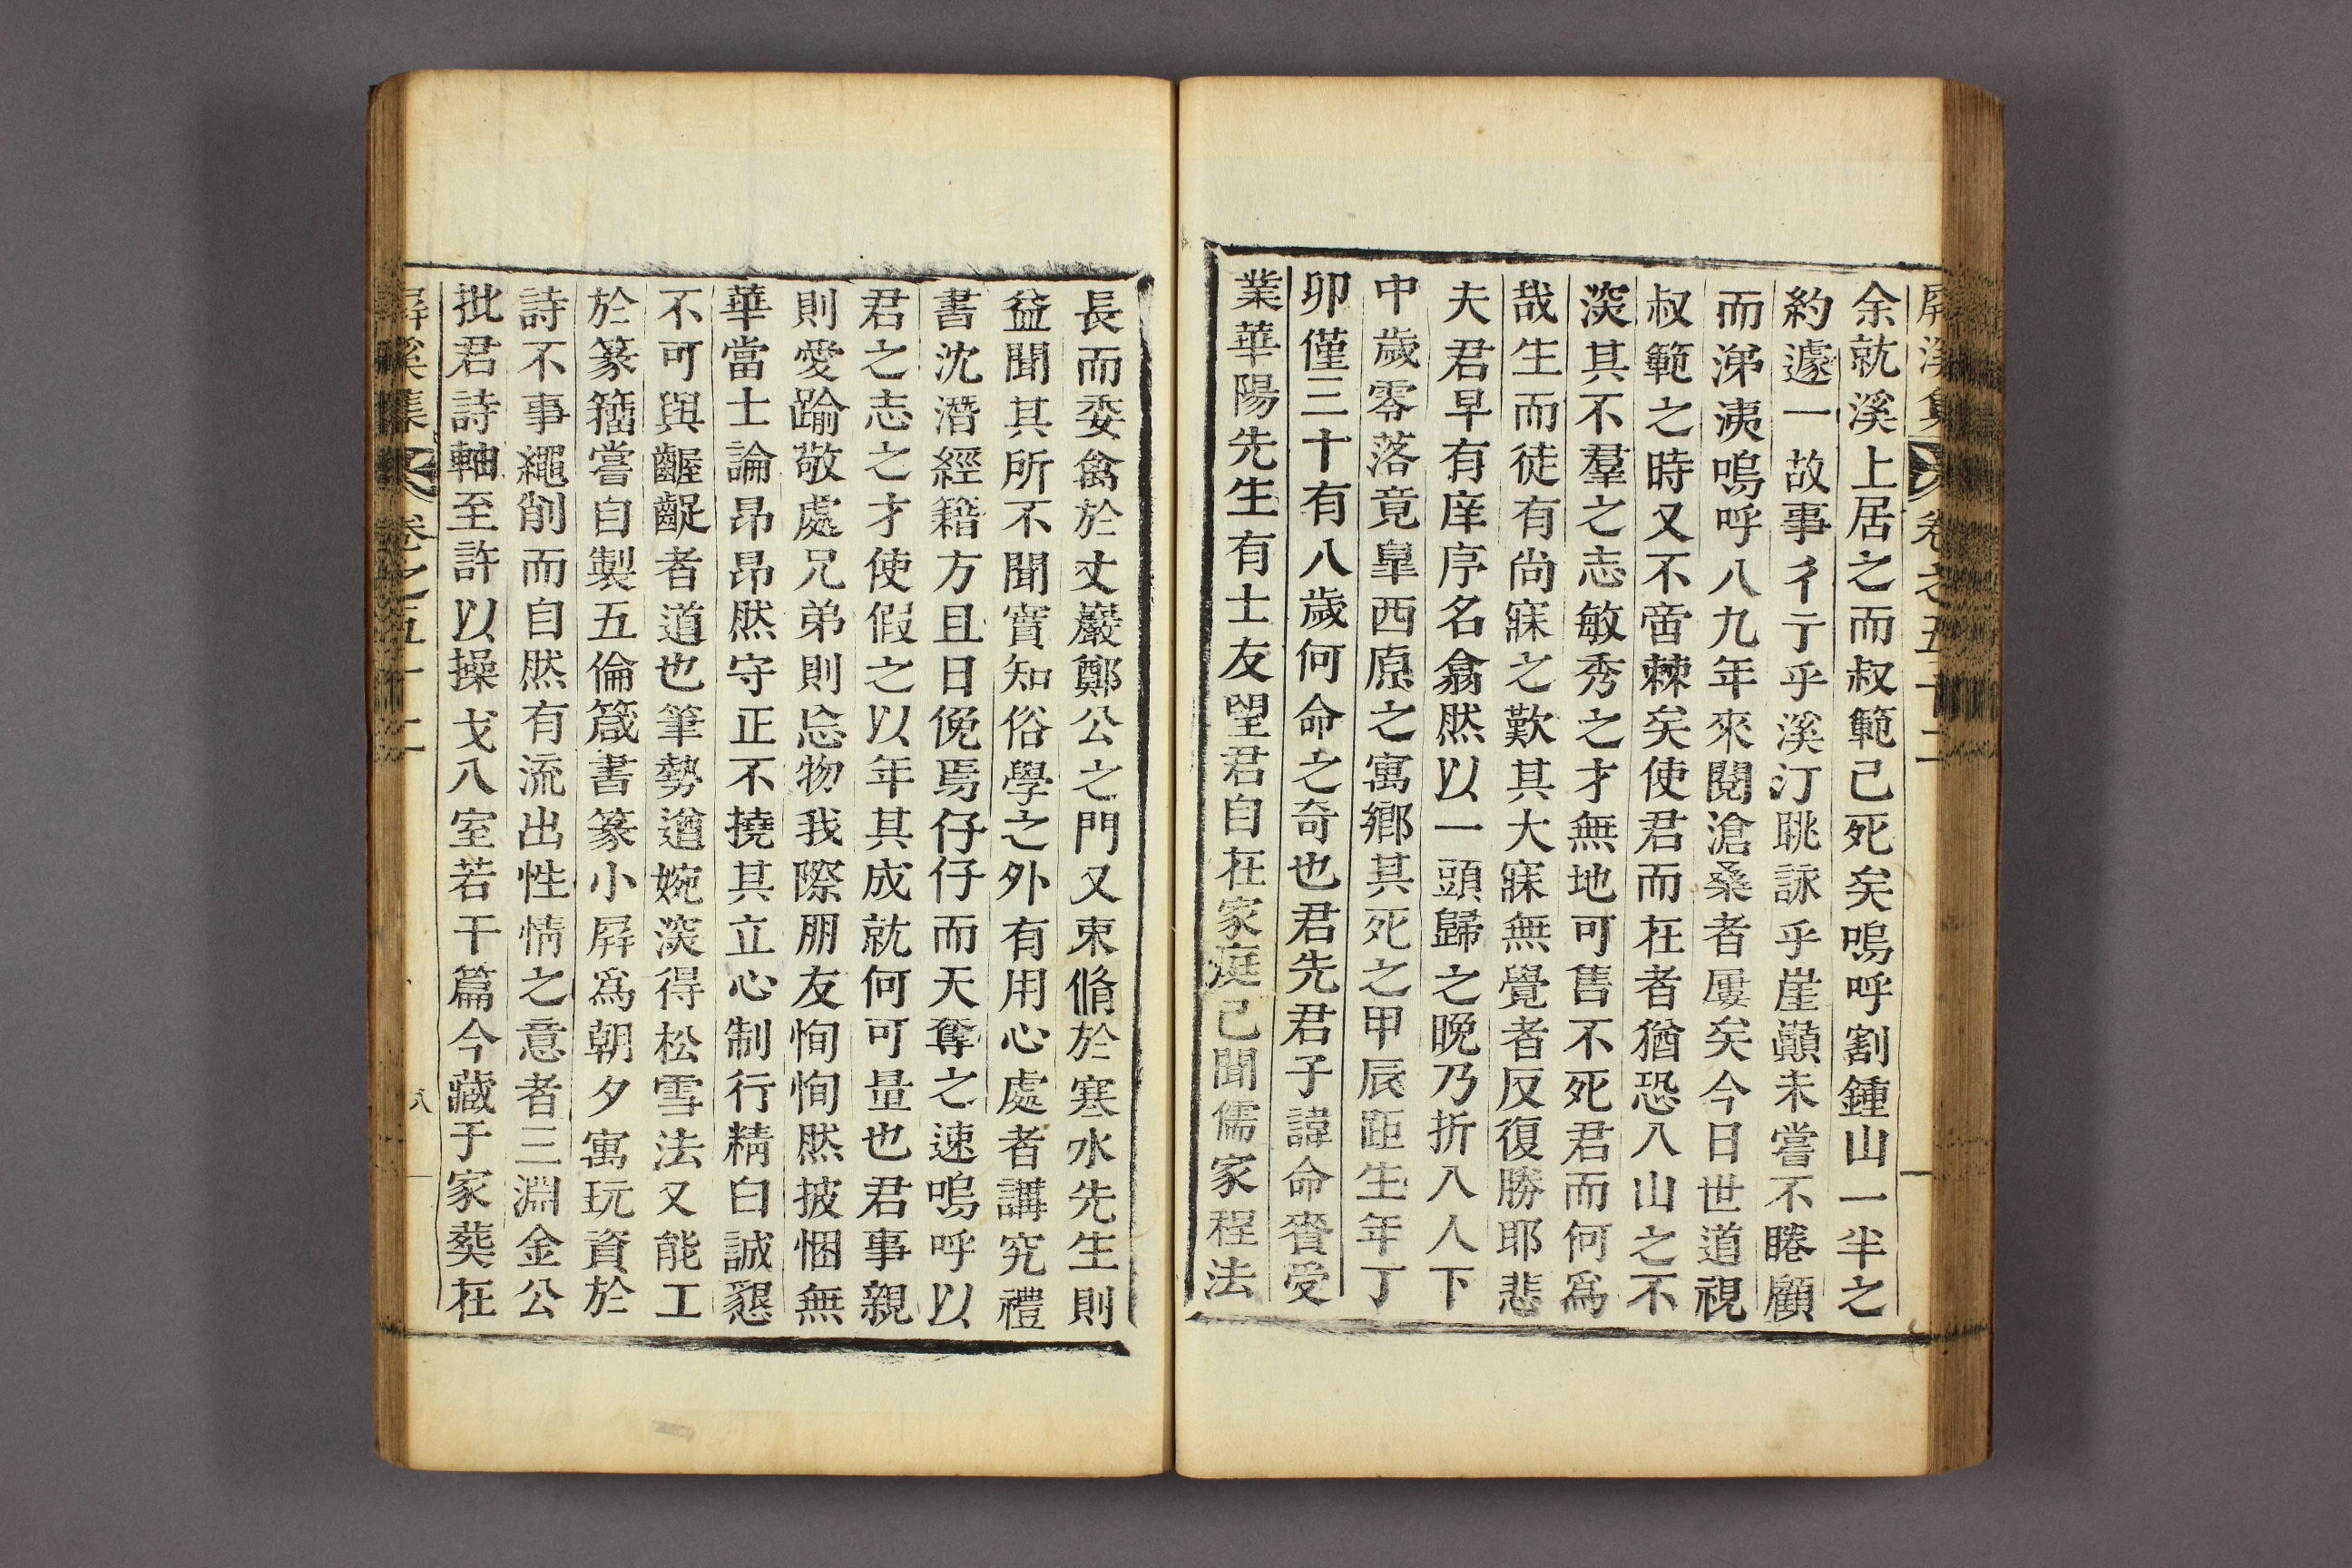 屛溪集
卷之五十二
余就溪上居之而叔範已死矣嗚呼割鍾山一半之
約遽一故事彳亍乎溪汀眺詠乎崖巓未嘗不睠顧
而涕洟嗚呼八九年來閱滄桑者屢矣今日世道視
叔範之時又不啻棘矣使君而在者猶恐入山之不
深其不羣之志敏秀之才無地可售不死君而何爲
哉生而徒有尙寐之歎其大寐無覺者反復勝耶悲
夫君早有庠序名翕然以一頭歸之晩乃折入人下
中歲零落竟皐西原之寓鄕其死之甲辰距生年丁
卯僅三十有八歲何命之奇也君先君子諱命賚受
業華陽先生有士友望君自在家庭已聞儒家程法
長而委禽於丈巖鄭公之門又束脩於寒水先生則
益聞其所不聞實知俗學之外有用心處者講究禮
書沈潛經籍方且日俛焉仔仔而天奪之速嗚呼以
君之志之才使假之以年其成就何可量也君事親
則愛踰敬處兄弟則忘物我際朋友恂恂然披悃無
華當士論昂昂然守正不撓其立心制行精白誠懇
不可與齷齪者道也筆勢遒婉深得松雪法又能工
於篆籒嘗自製五倫箴書篆小屛爲朝夕寓玩資於
詩不事繩削而自然有流出性情之意者三淵金公
批君詩軸至許以操戈入室若干篇今藏于家葬在
屛溪集
卷之五十二
八